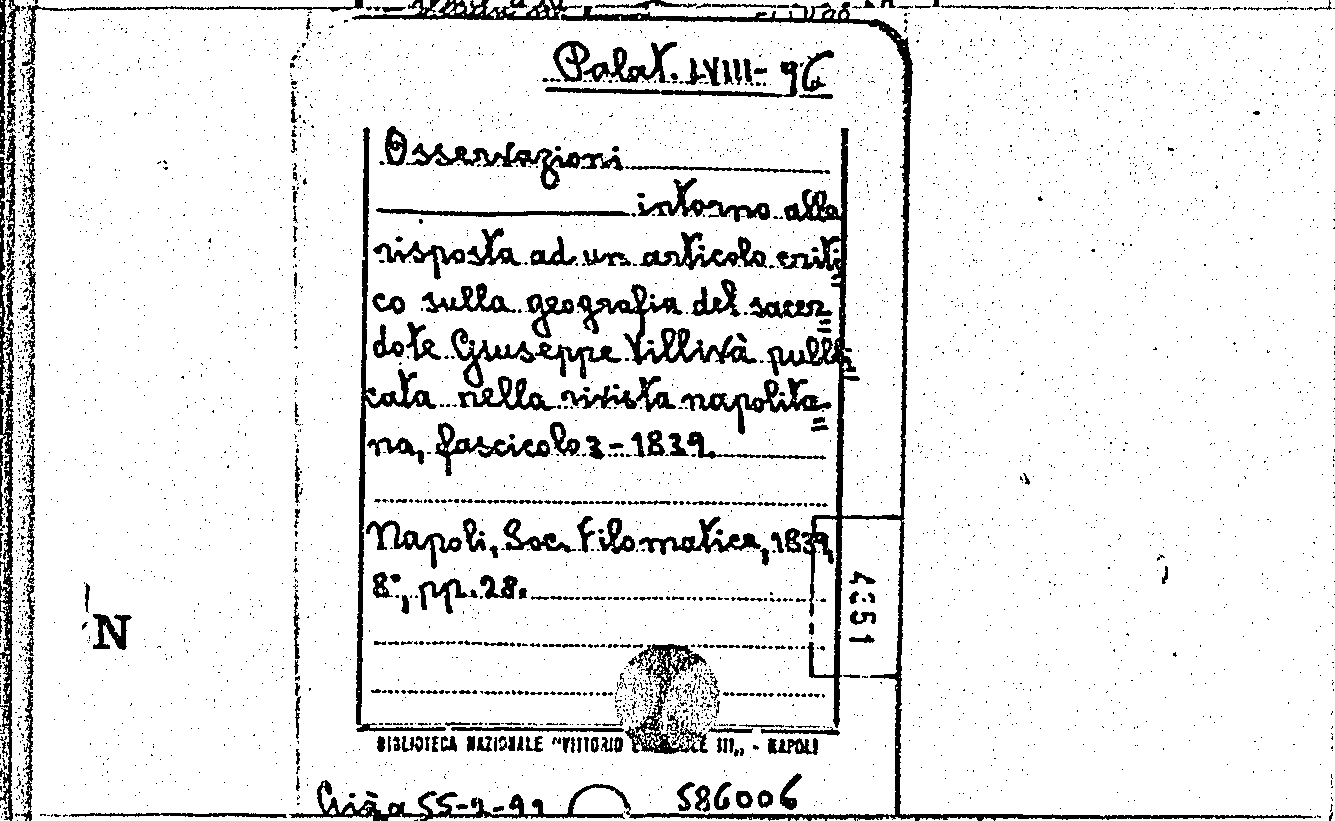 Palat. LVIII- 96
Osservazioni
intorno alla
risposta ad un articolo criti=
co sulla geografia del sacer=
dote Giuseppe Villivà pubbli=
cata nella rivista napolita=
na, fascicolo 3-1839.
Napoli, Soc. Filomatica, 1839,
8°, pp. 28.
4351
N
BIBLIOTECA NAZIONALE "VITTORIO III„ - NAPOLI
55-2-91
586006